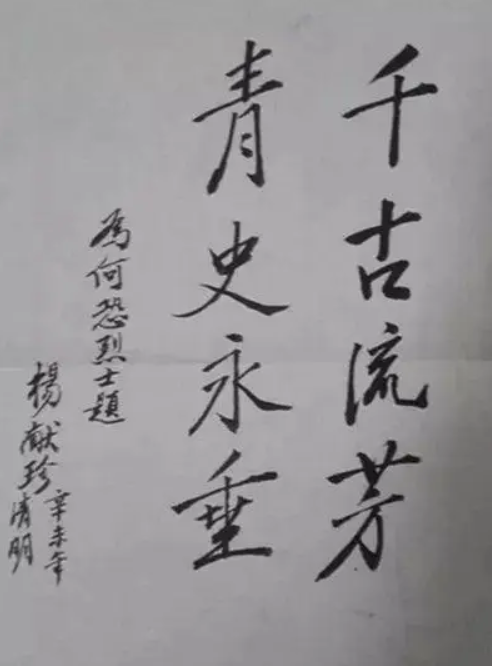 千古流芳
青史永垂
為何恐烈士題
楊献珍
辛未年
清明